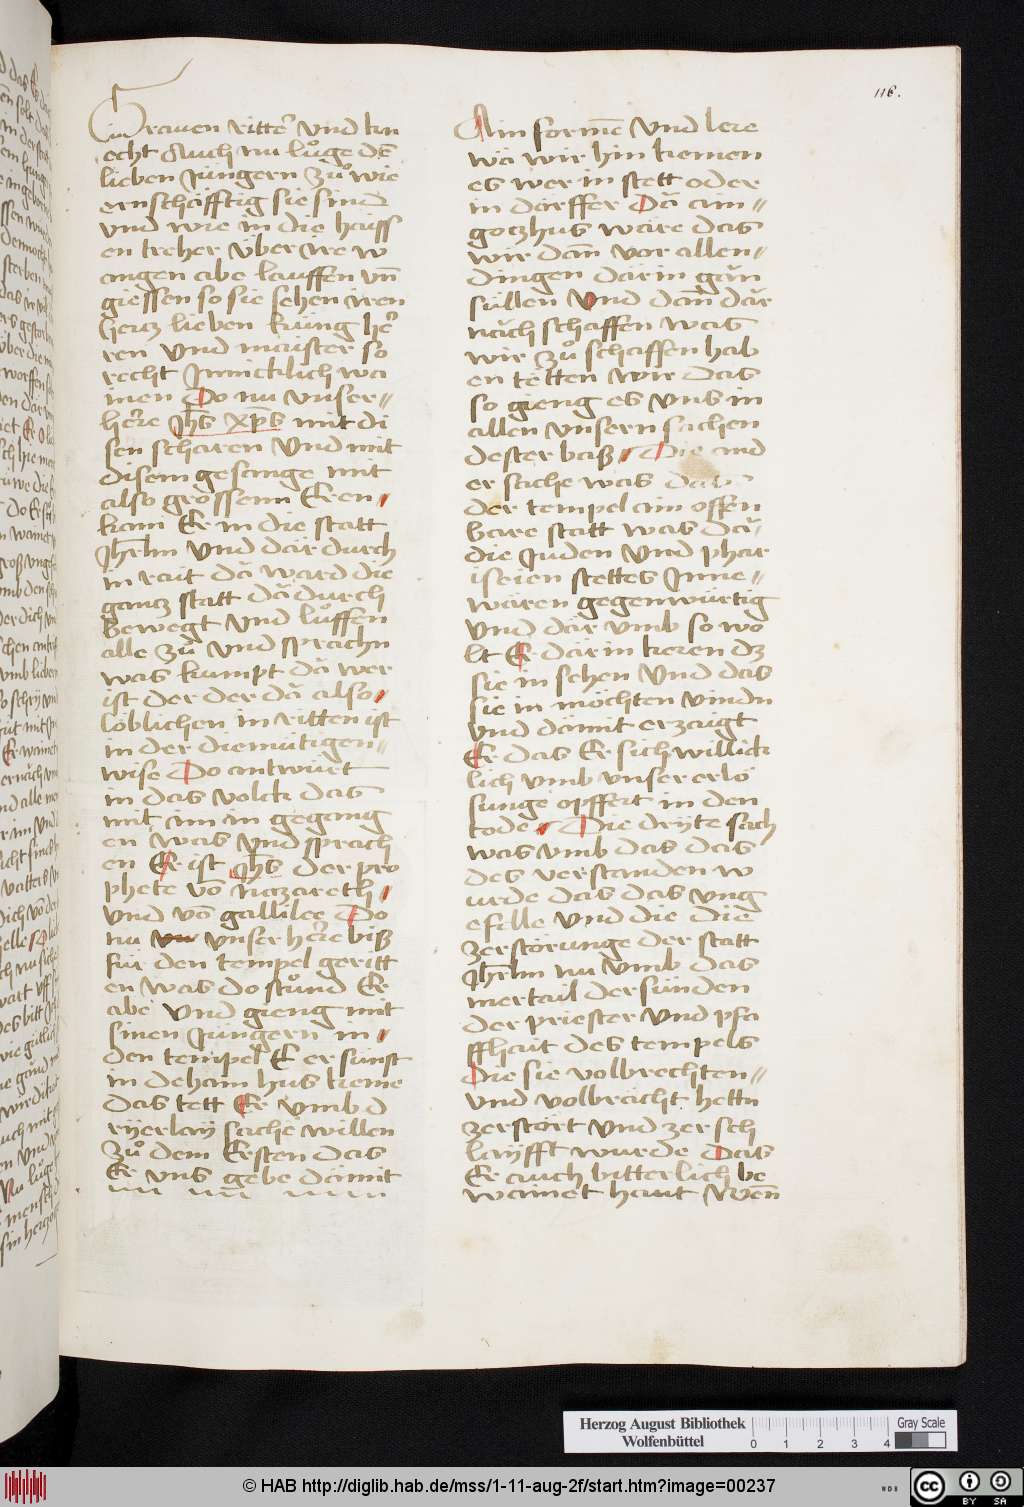 116.
Grauen ritter vnd kn
echt Auch nu luͦge dē
lieben Jüngern zuͦ wie
ernschäfftig sie sind
vnd wie in die haiss
en treher über ire w
angen abe lauffen vn̄
giessen so sie sehen iren
hertz lieben küng her
ren vnd maister so
recht Jnnicklich wa
inen Do nu vnser〃
herre Jhs xp̄s mit di
sen scharen Vnd mit
disem gesange mit
also grossenn Eren
kam Er in die statt
Jhrlm̄ Vnd där durch
in rait dä ward die
gantz statt dä durch
bewegt Vnd luͦffen
alle zuͦ Vnd sprachn
was kumpt dä wer
ist der der dä also
loblichen in ritten ist
in der diemütigen〃
wise Do antwürt
in das volck das
mit im in gegang
en was Vnd sprach
en Er ist Jhs der pro
phete vō nazareth
vnd vō gallilee Do
nu vnser herre biß
für den tempel geritt
en was do stuͦnd Er
abe Vnd gieng mit
sinen Jüngern in
den tempel E er sünst
in dehain hus keme
das tett Er vmb d
ryerlay sache willen
Zuͦ dem Ersten das
Er vns gebe dämit
Ain forme Vnd lere
wä wir hin kemen
es wer in stett oder
in därffer Dä ain〃
gotzhus wäre das
wir dan̄ vor allen〃
dingen därin gän
süllen Vnd dan̄ där
näch schaffen was
wir zuͦ schaffen hab
en tetten wir das
so gieng es vns in
allen vnsern sachen
dester baß Die and
er sache was
der tempel ain offen
bare statt was dä
die Juden Vnd phar
iseien stettes Jnne〃
wären gegenwürtig
Vnd där vmb so wo
lt Er där in keren dz
sie in sehen Vnd das
sie in möchten vindn
Vnd dämit erzaigt
Er das Er sich willick
lich vmb vnser erlö
sunge opffert in den
tode Die dryte sach
was vmb das das
des verstanden w
urde das das vng
efelle Vnd die die
zerstörunge der statt
Jhrlm̄ nu Vmb das
mertail der sünden
der priester Vnd pfa
ffhait des tempels
Die sie volbrechten〃
Vnd volbrächt hettn
zerstört Vnd zer sch
layfft wurde Das
Er auch bitterlich be
wainet haut Wen̄
Herzog August Bibliothek
Wolfenbüttel
0 1 2 3 4
Gray Scale
© HAB http://diglib.hab.de/mss/1-11-aug-2f/start.htm?image=00237
cc BY SA